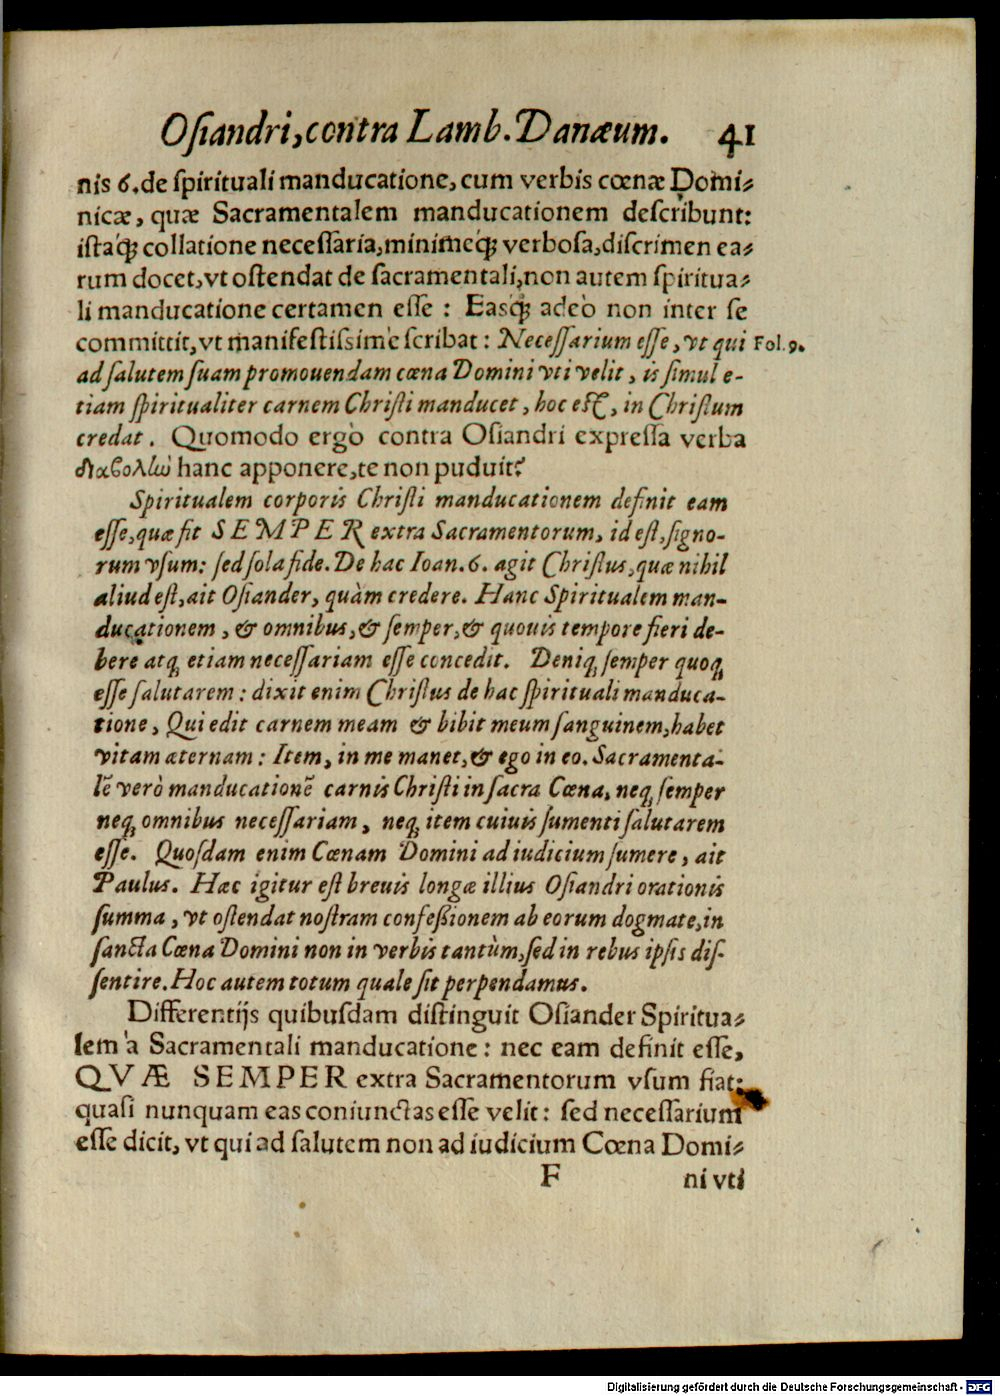 Oſiandri, contra Lamb. Danæum. 41
nis 6. de ſpirituali manducatione, cum verbis cœnæ Domi-
nicæ, quæ Sacramentalem manducationem deſcribunt:
iſtaq́; collatione neceſſaria, minimeq́; verboſa, diſcrimen ea-
rum docet, vt oſtendat de ſacramentali, non autem ſpiritua-
li manducatione certamen eſſe : Easq́; adeò non inter ſe
committit, vt manifeſtiſsimè ſcribat : Neceſſarium eſſe, vt qui Fol. 9.
ad ſalutem ſuam promouendam cœna Domini vti velit, is ſimul e-
tiam ſpiritualiter carnem Chriſti manducet, hoc eſt, in Chriſtum
credat. Quomodo ergò contra Oſiandri expreſſa verba
διαβολὴν hanc apponere, te non puduit?
Spiritualem corporis Chriſti manducationem definit eam
eſſe, quæ fit SEMPER extra Sacramentorum, id eſt, ſigno-
rum vſum: ſed ſola fide. De hac Ioan. 6. agit Chriſtus, quæ nihil
aliud eſt, ait Oſiander, quàm credere. Hanc Spiritualem man-
ducationem, & omnibus, & ſemper, & quouis tempore fieri de-
bere atq; etiam neceſſariam eſſe concedit. Deniq; ſemper quoq;
eſſe ſalutarem : dixit enim Chriſtus de hac ſpirituali manduca-
tione, Qui edit carnem meam & bibit meum ſanguinem, habet
vitam æternam : Item, in me manet, & ego in eo. Sacramenta-
lẽ verò manducationẽ carnis Chriſti in ſacra Cœna, neq; ſemper
neq; omnibus neceſſariam, neq; item cuiuis ſumenti ſalutarem
eſſe. Quoſdam enim Cœnam Domini ad iudicium ſumere, ait
Paulus. Hæc igitur eſt breuis longæ illius Oſiandri orationis
ſumma, vt oſtendat noſtram confeßionem ab eorum dogmate, in
ſancta Cœna Domini non in verbis tantùm, ſed in rebus ipſis diſ-
ſentire. Hoc autem totum quale ſit perpendamus.
Differentijs quibuſdam diſtinguit Oſiander Spiritua-
lem à Sacramentali manducatione : nec eam definit eſſe,
QVÆ SEMPER extra Sacramentorum vſum fiat:
quaſi nunquam eas coniunctas eſſe velit : ſed neceſſarium
eſſe dicit, vt qui ad ſalutem non ad iudicium Cœna Domi-
F ni vti
Digitalisierung gefördert durch die Deutsche Forschungsgemeinschaft - DFG